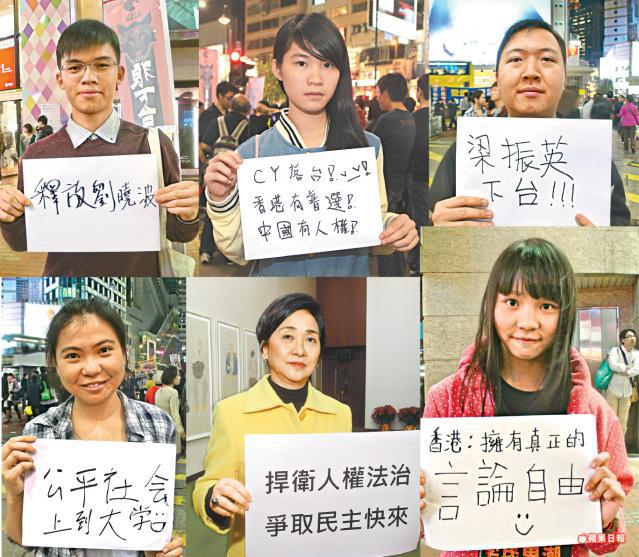 釋放劉曉波
CY落台!
香港有普選!
中國有人權!
梁振英
下台!!!
公平社會
上到大學
捍衛人權法治
爭取民主快來
香港:擁有真正的
言論自由
蘋果日報